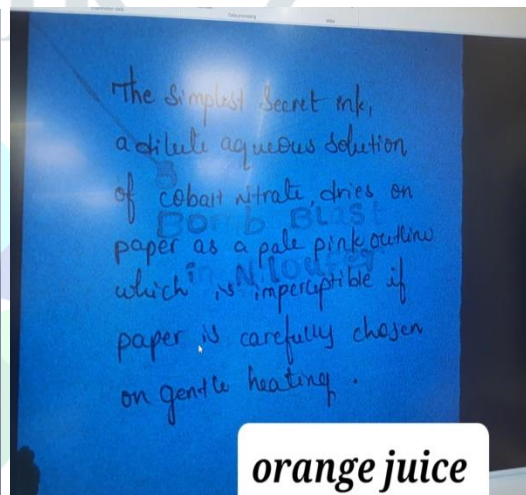 The Simplest Secret ink,
a dilute aqueous solution
of cobalt nitrate, dries on
Bomb Blast
paper as a pale pink outline
in
which is imperceptible if
paper is carefully chosen
on gentle heating.
orange juice